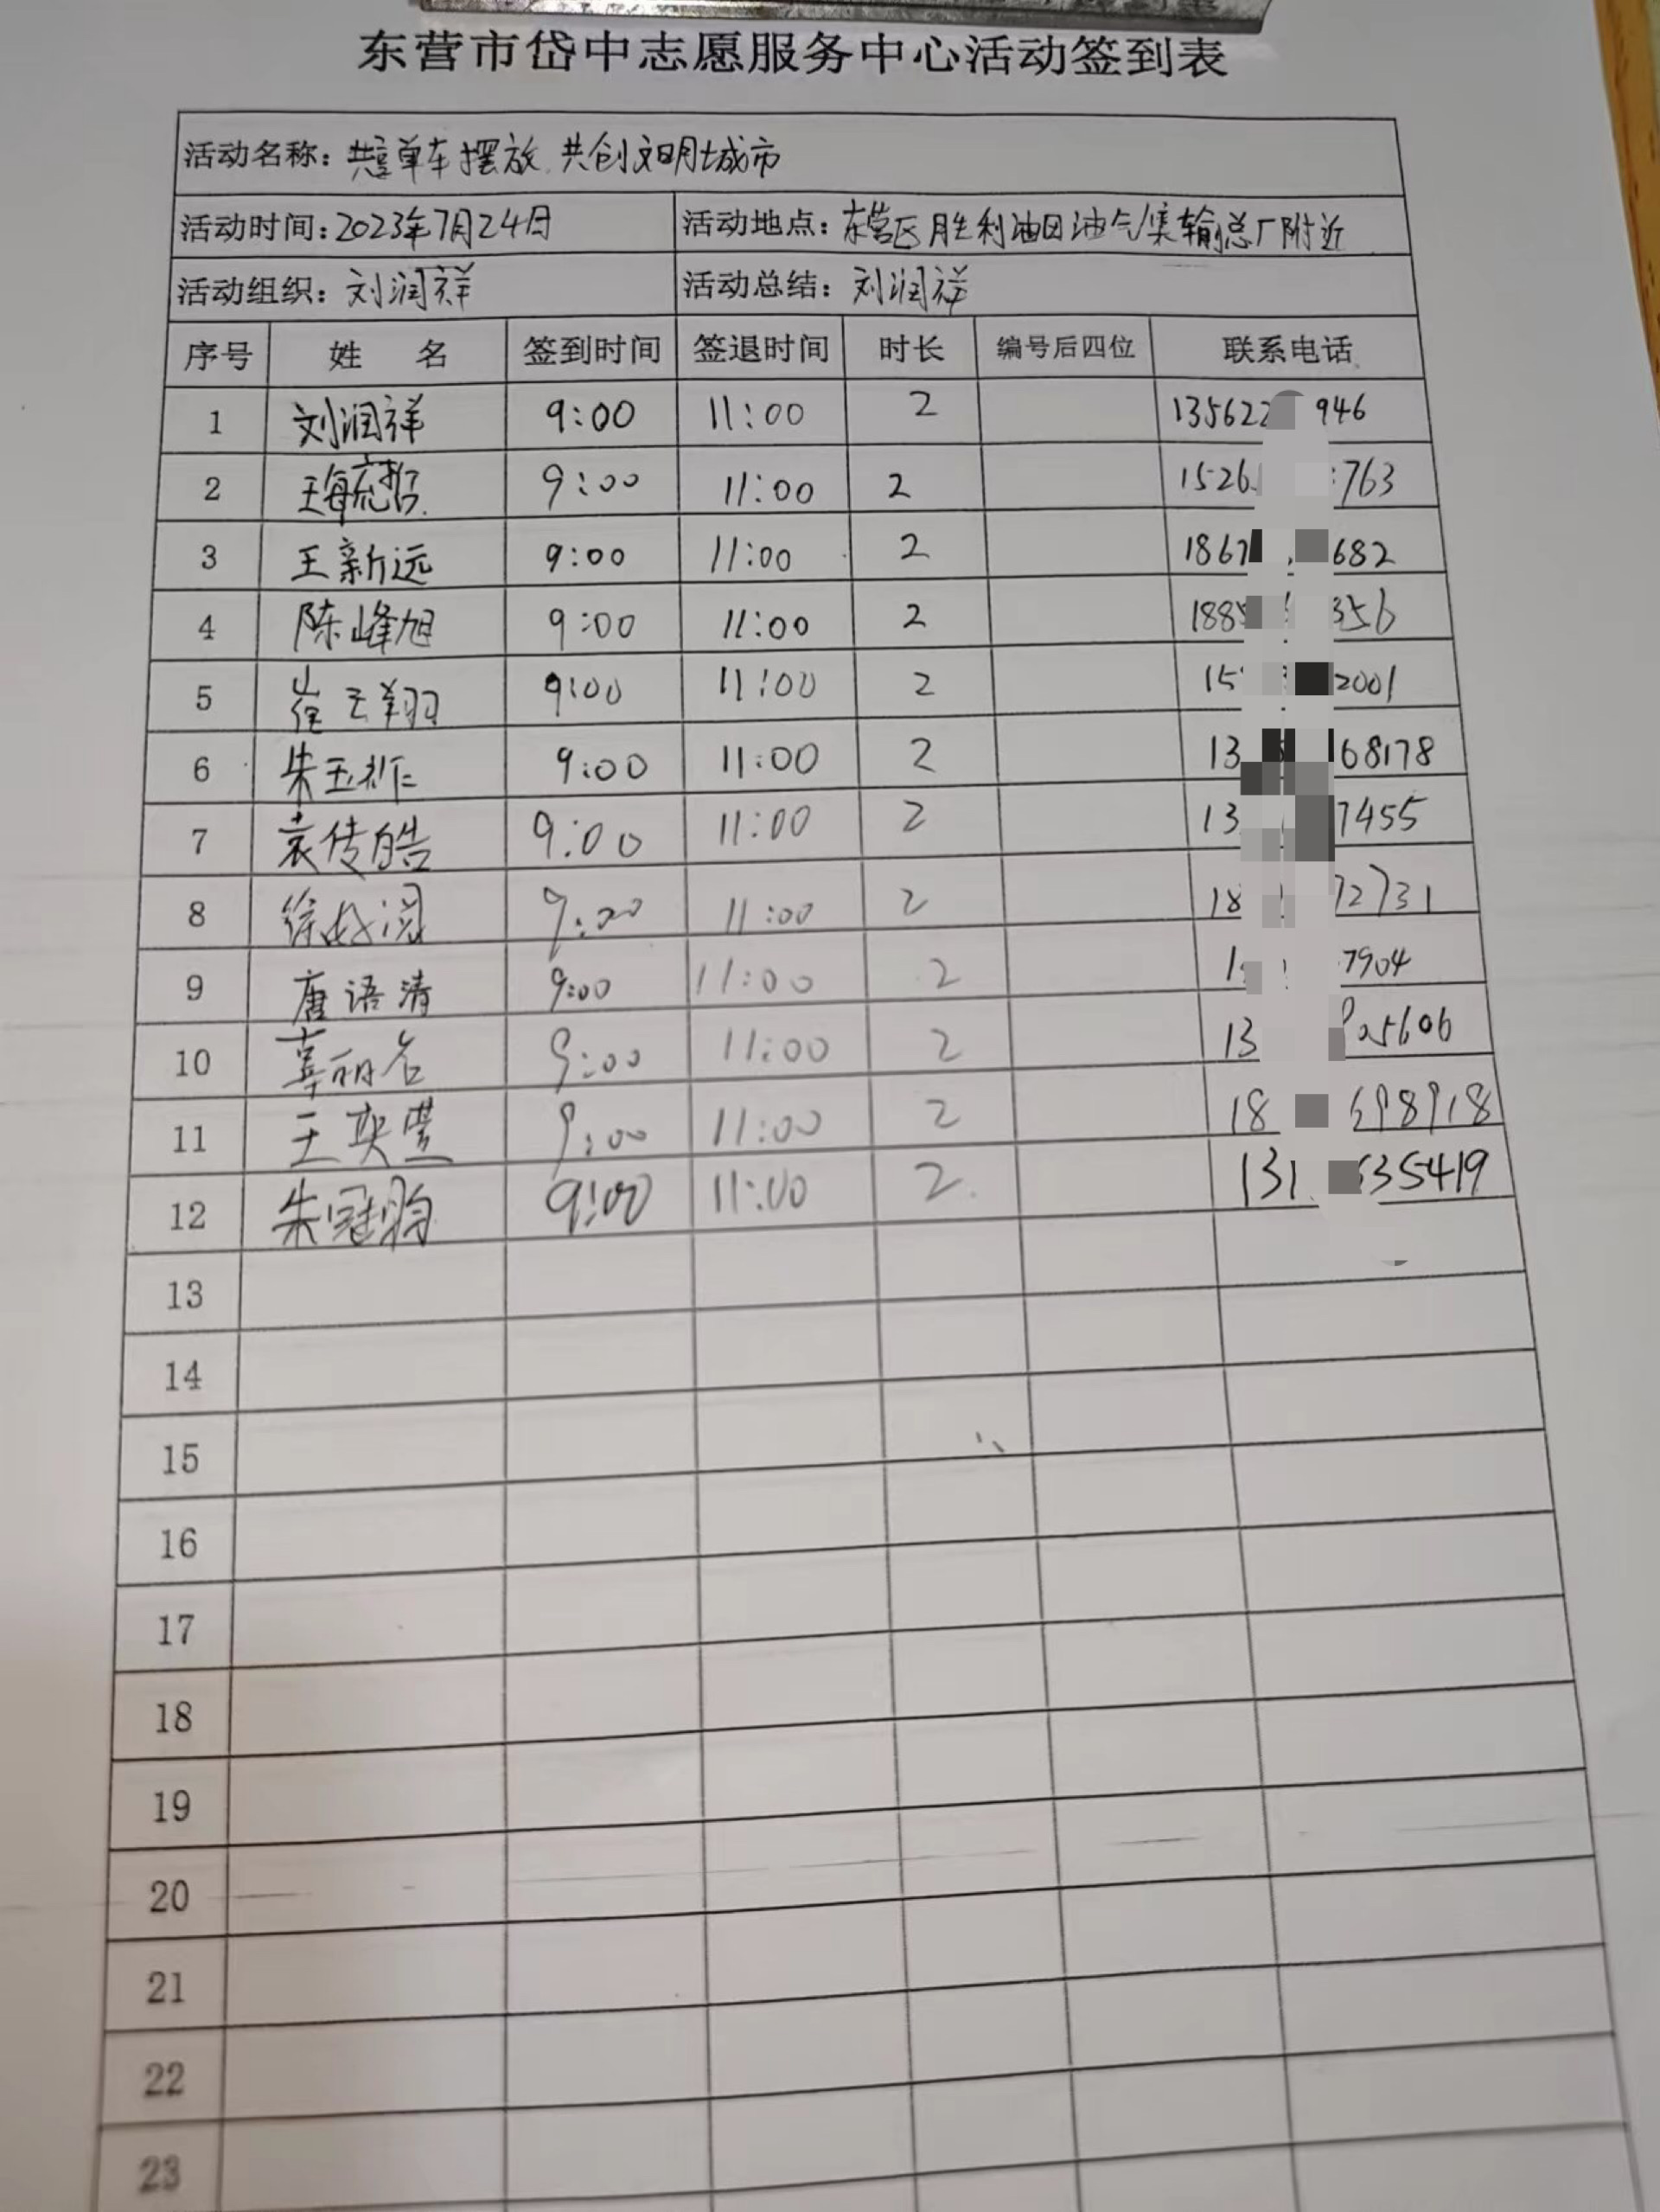 东营市岱中志愿服务中心活动签到表
活动名称：共享单车摆放，共创文明城市
活动时间：2023年7月24日 活动地点：东营区胜利油田油气集输总厂附近
活动组织：刘润祥 活动总结：刘润祥
序号 姓 名 签到时间 签退时间 时长 编号后四位 联系电话
1 刘润祥 9:00 11:00 2 135622 946
2 9:00 11:00 2 1526 763
3 王新远 9:00 11:00 2 1867 682
4 陈峰旭 9:00 11:00 2 188 356
5 崔云翔 9:00 11:00 2 15 2001
6 朱玉 9:00 11:00 2 13 68178
7 袁传皓 9:00 11:00 2 13 7455
8 徐 9:00 11:00 2 18 72731
9 唐语清 9:00 11:00 2 1 7904
10 9:00 11:00 2 13 5606
11 王奕萱 9:00 11:00 2 18 98918
12 朱冠 9:00 11:00 2 131 635419
13
14
15
16
17
18
19
20
21
22
23